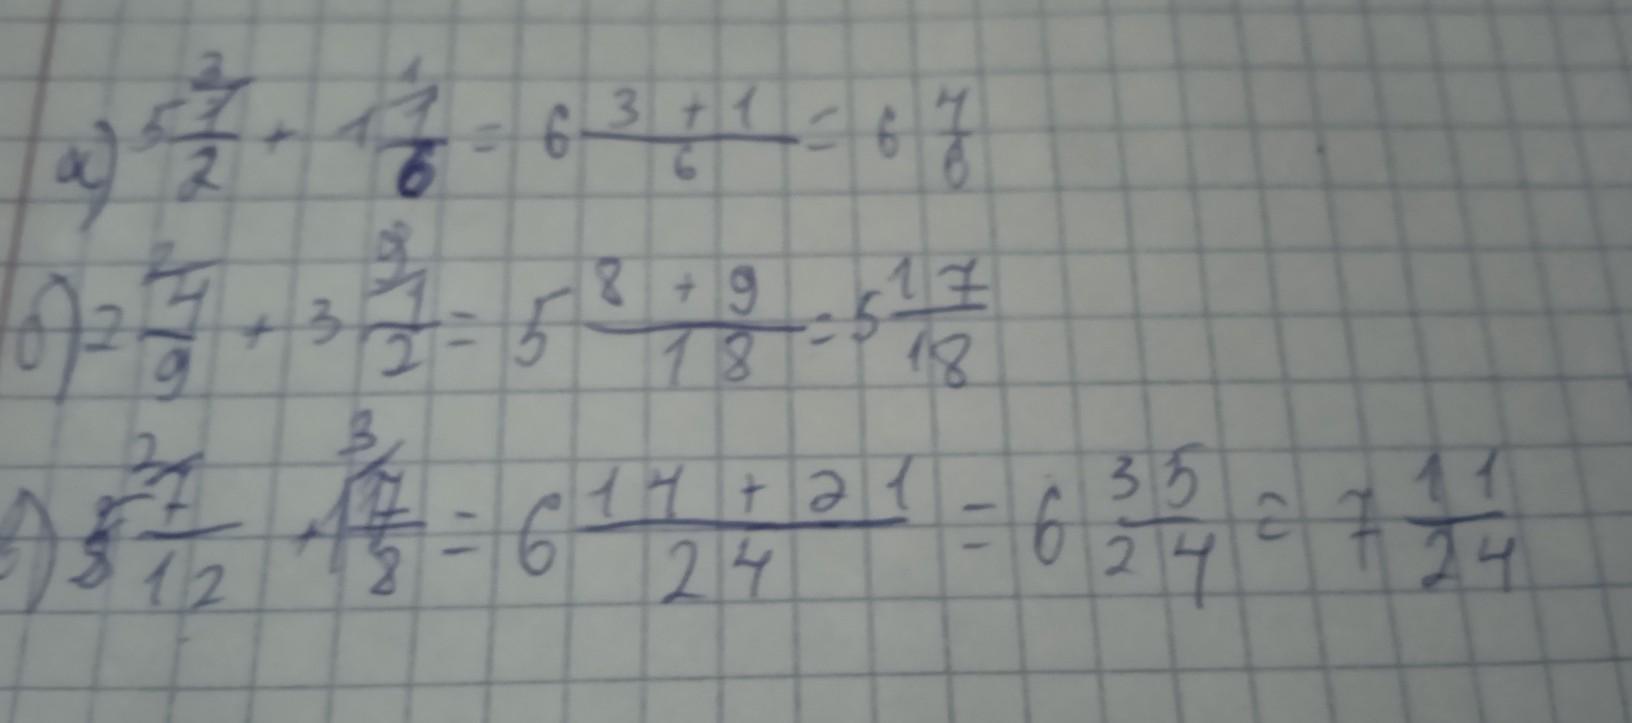 а) 5 3/ 1/2 + 1 1/ 1/6 = 6 (3 + 1)/6 = 6 4/6
б) 2 2/ 4/9 + 3 9/ 1/2 = 5 (8 + 9)/18 = 5 17/18
в) 5 2/ 7/12 + 1 3/ 7/8 = 6 (14 + 21)/24 = 6 35/24 = 7 11/24